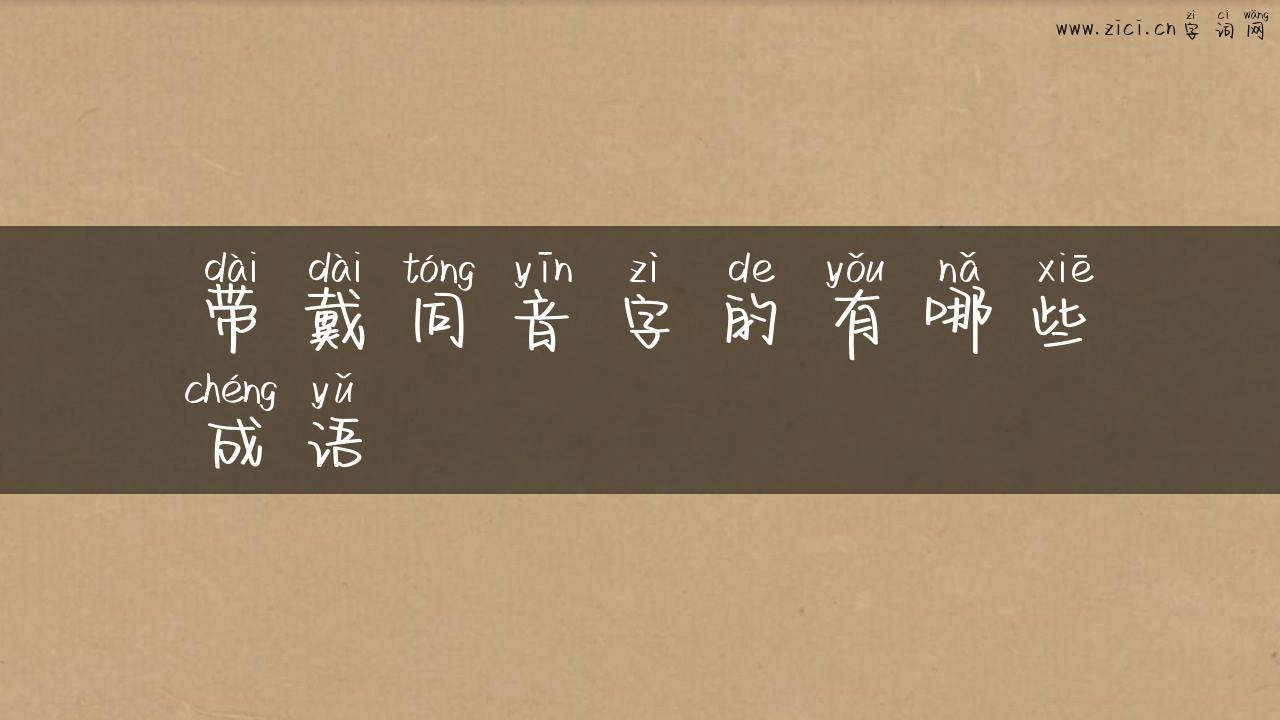 zì cí wǎng
www.zici.cn 字词网
dài dài tóng yīn zì de yǒu nǎ xiē
带戴同音字的有哪些
chéng yǔ
成语